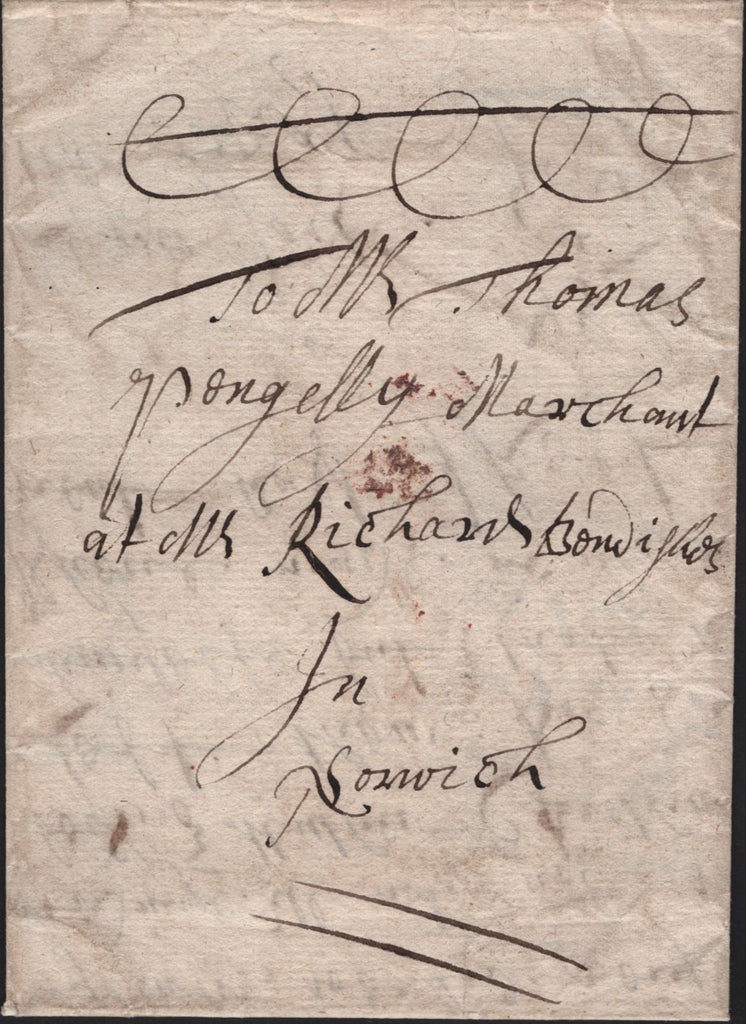 To Mr Thomas
Pengelly Marchant
at Mr Richard Bendishes
In
Norwich